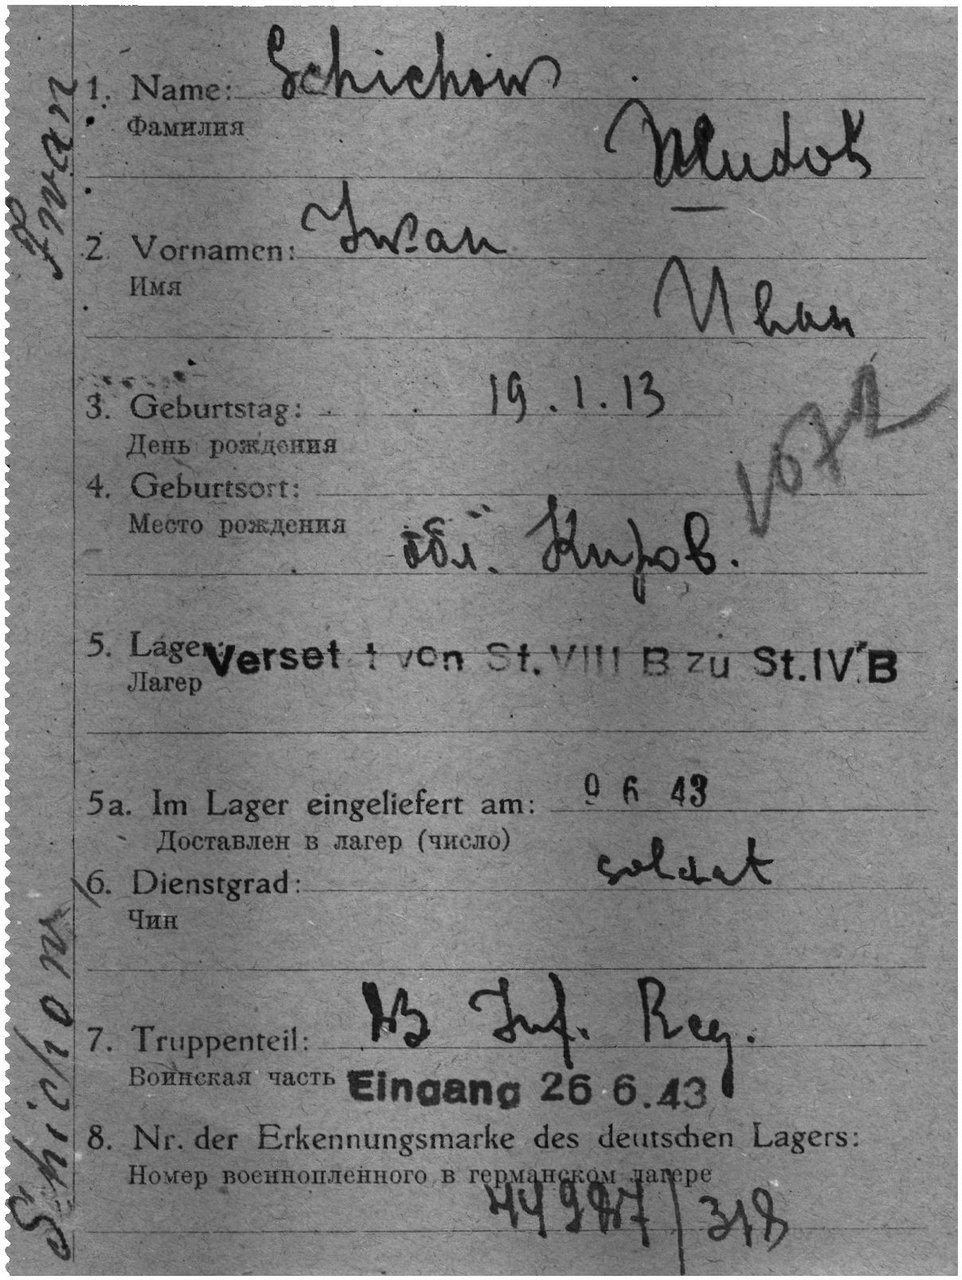 1. Name: Schichow
Фамилия
2. Vornamen: Iwan
Имя
Иван
3. Geburtstag: 19.1.13
День рождения
4. Geburtsort:
Место рождения
обл. Киров.
5. Lager: Versetzt von St. VIII B zu St. IV B
Лагер
5a. Im Lager eingeliefert am: 9 6 43
Доставлен в лагер (число)
soldat
6. Dienstgrad:
Чин
7. Truppenteil: Inf. Reg.
Воинская часть Eingang 26 6.43
8. Nr. der Erkennungsmarke des deutschen Lagers:
Номер военнопленного в германском лагере
/318
Schichow
Iwan